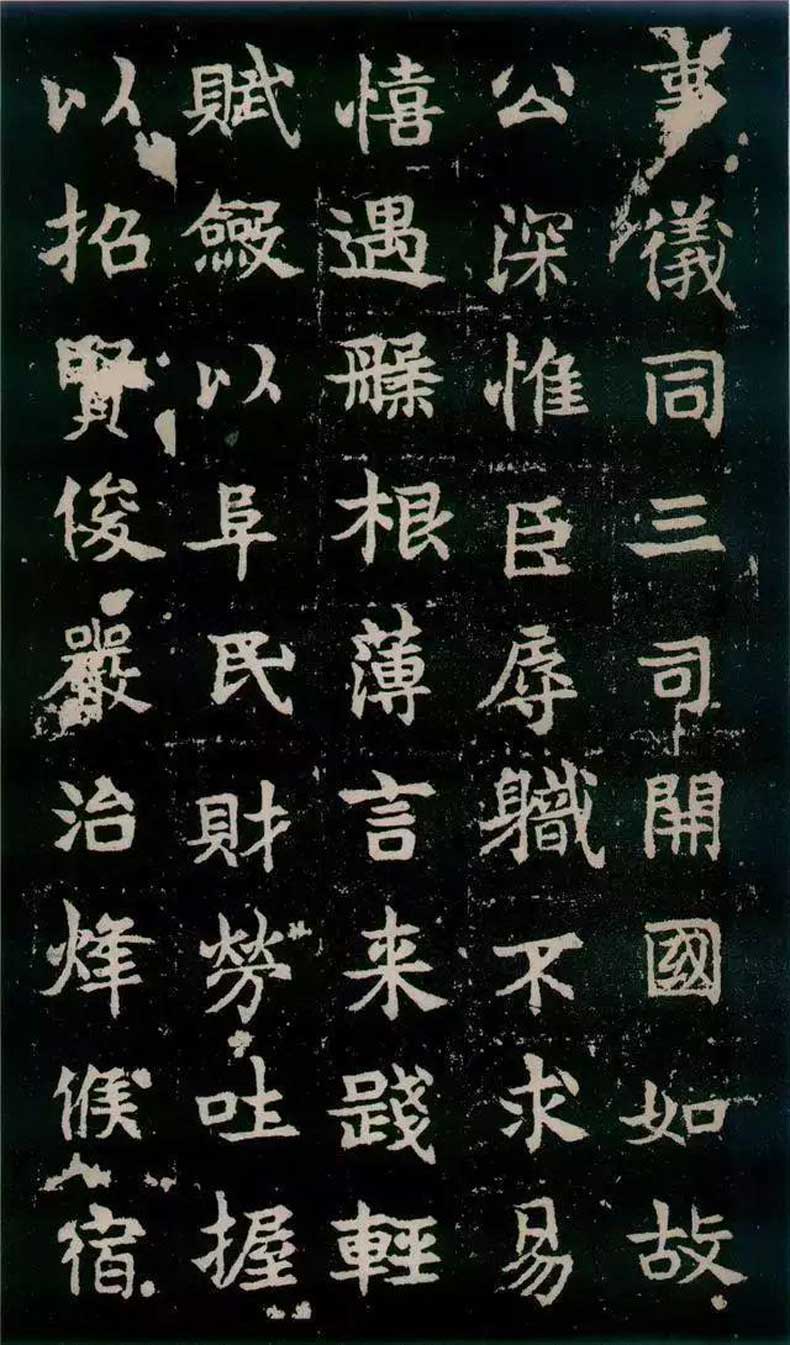 事儀同三司開國如故
公深惟臣辱軄不求易
憘遇根薄言来踐輕
賦斂以阜民財勞吐握
以招賢俊嚴治烽候宿